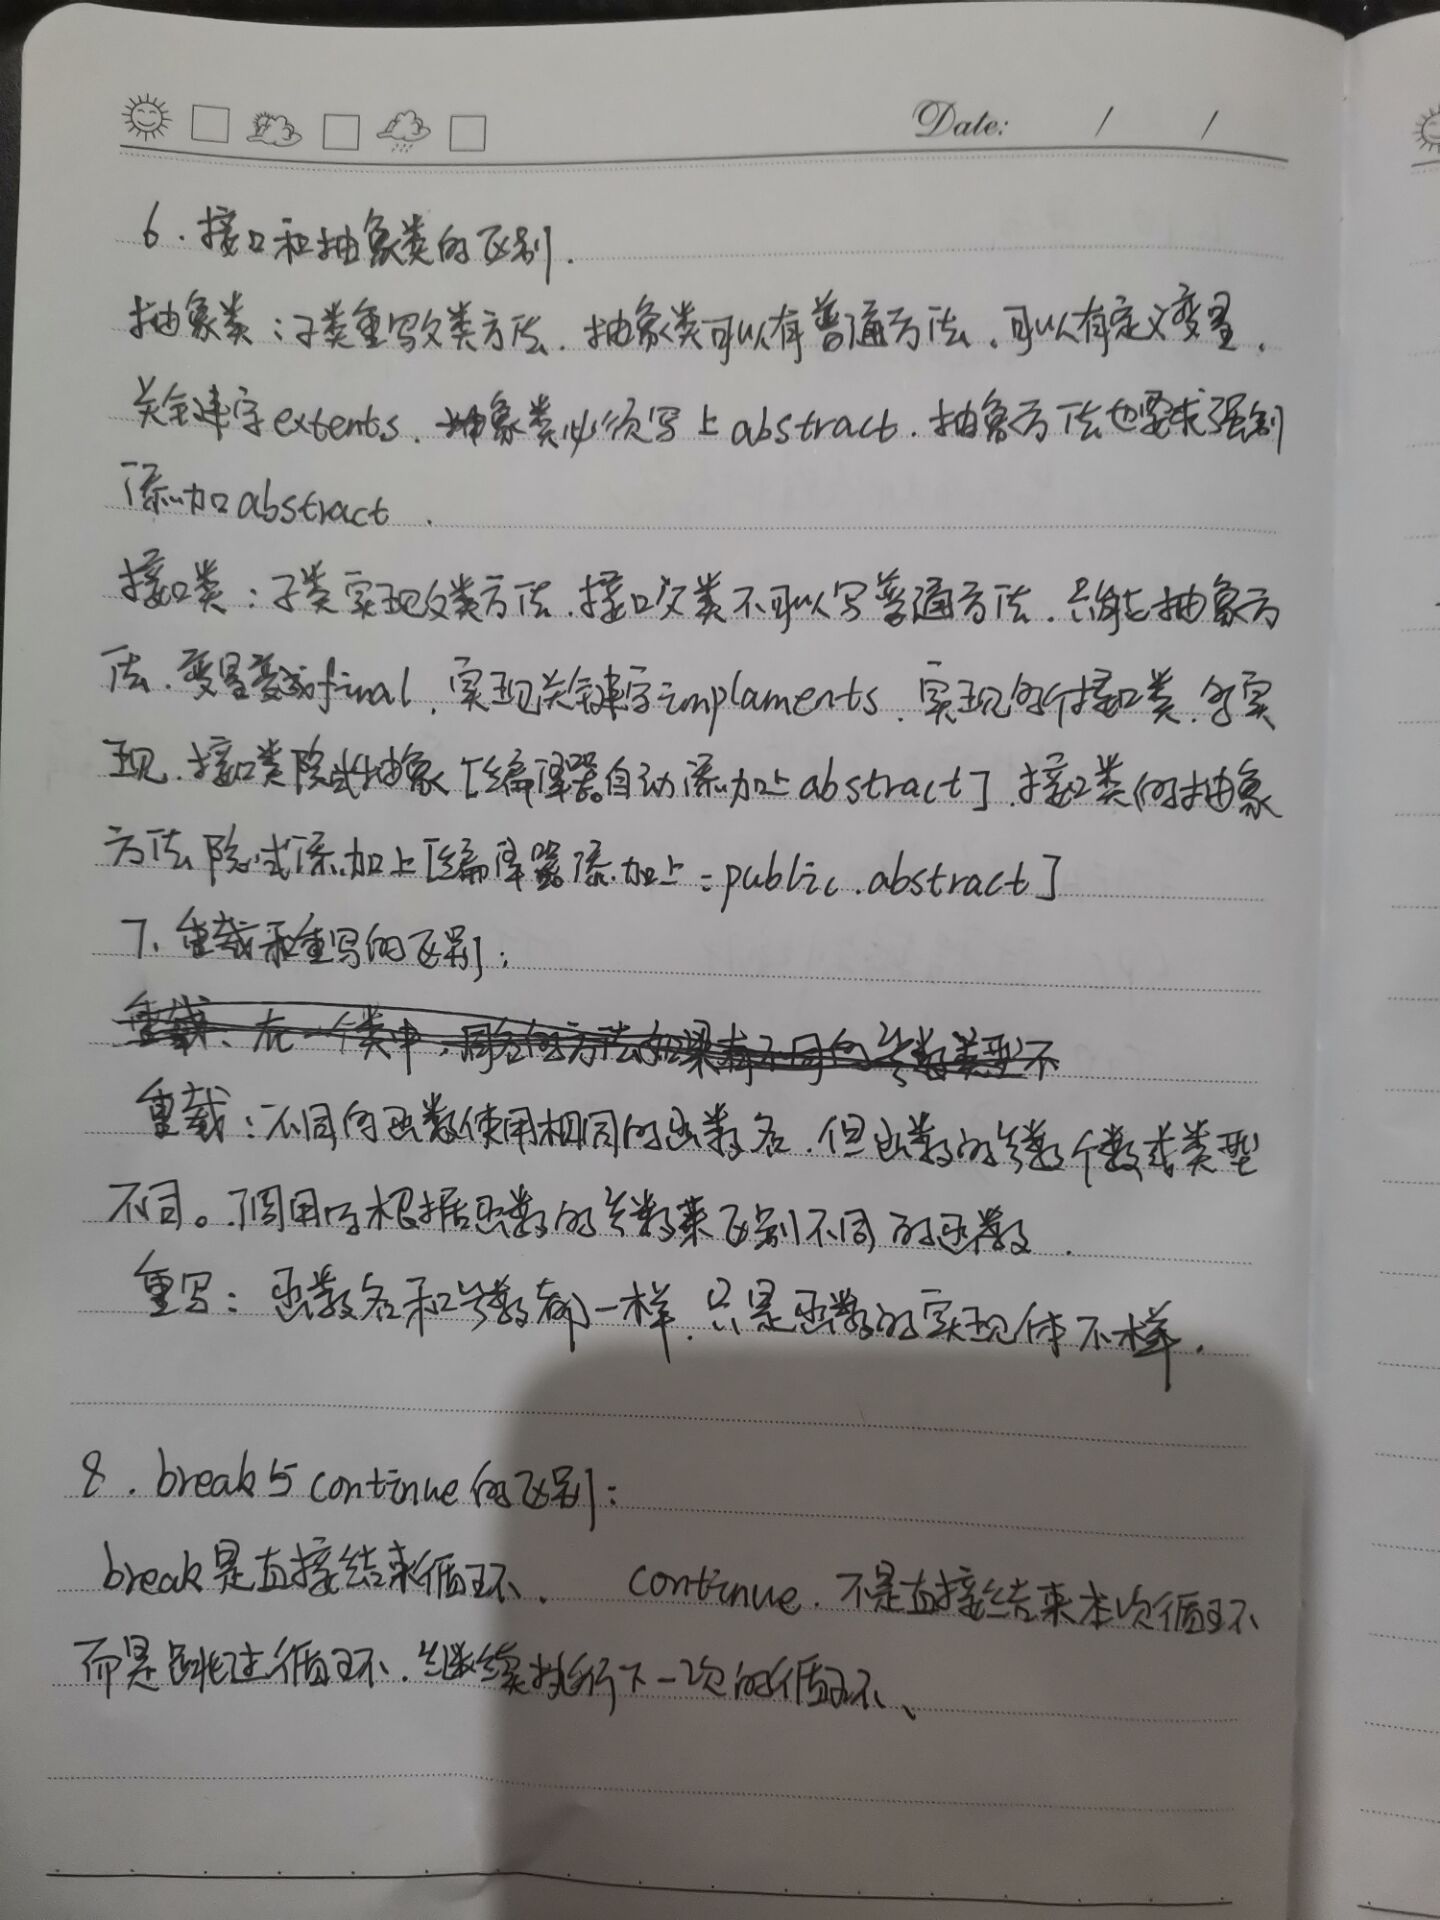 Date: / /
6. 接口和抽象类的区别.
抽象类:子类重写父类方法. 抽象类可以有普通方法, 可以有定义变量.
关键字extents. 抽象类必须写上abstract. 抽象方法也要求强制
添加abstract.
接口类:子类实现父类方法. 接口父类不可以写普通方法. 只能抽象方
法. 变量变成final, 实现关键字implaments. 实现的个接口类. 的实
现. 接口类隐式抽象[编译器自动添加上abstract]. 接口类的抽象
方法隐式添加上[编译器添加上=public.abstract]
7. 重载和重写的区别:
重载、在一个类中, 同名的方法如果有不同的参数类型不
重载:不同的函数使用相同的函数名, 但函数的参数个数或类型
不同。调用时根据函数的参数来区别不同的函数.
重写: 函数名和参数都一样. 只是函数的实现体不样.
8. break与continue的区别:
break是直接结束循环. continue. 不是直接结束本次循环
而是跳过循环. 继续执行下一次的循环、